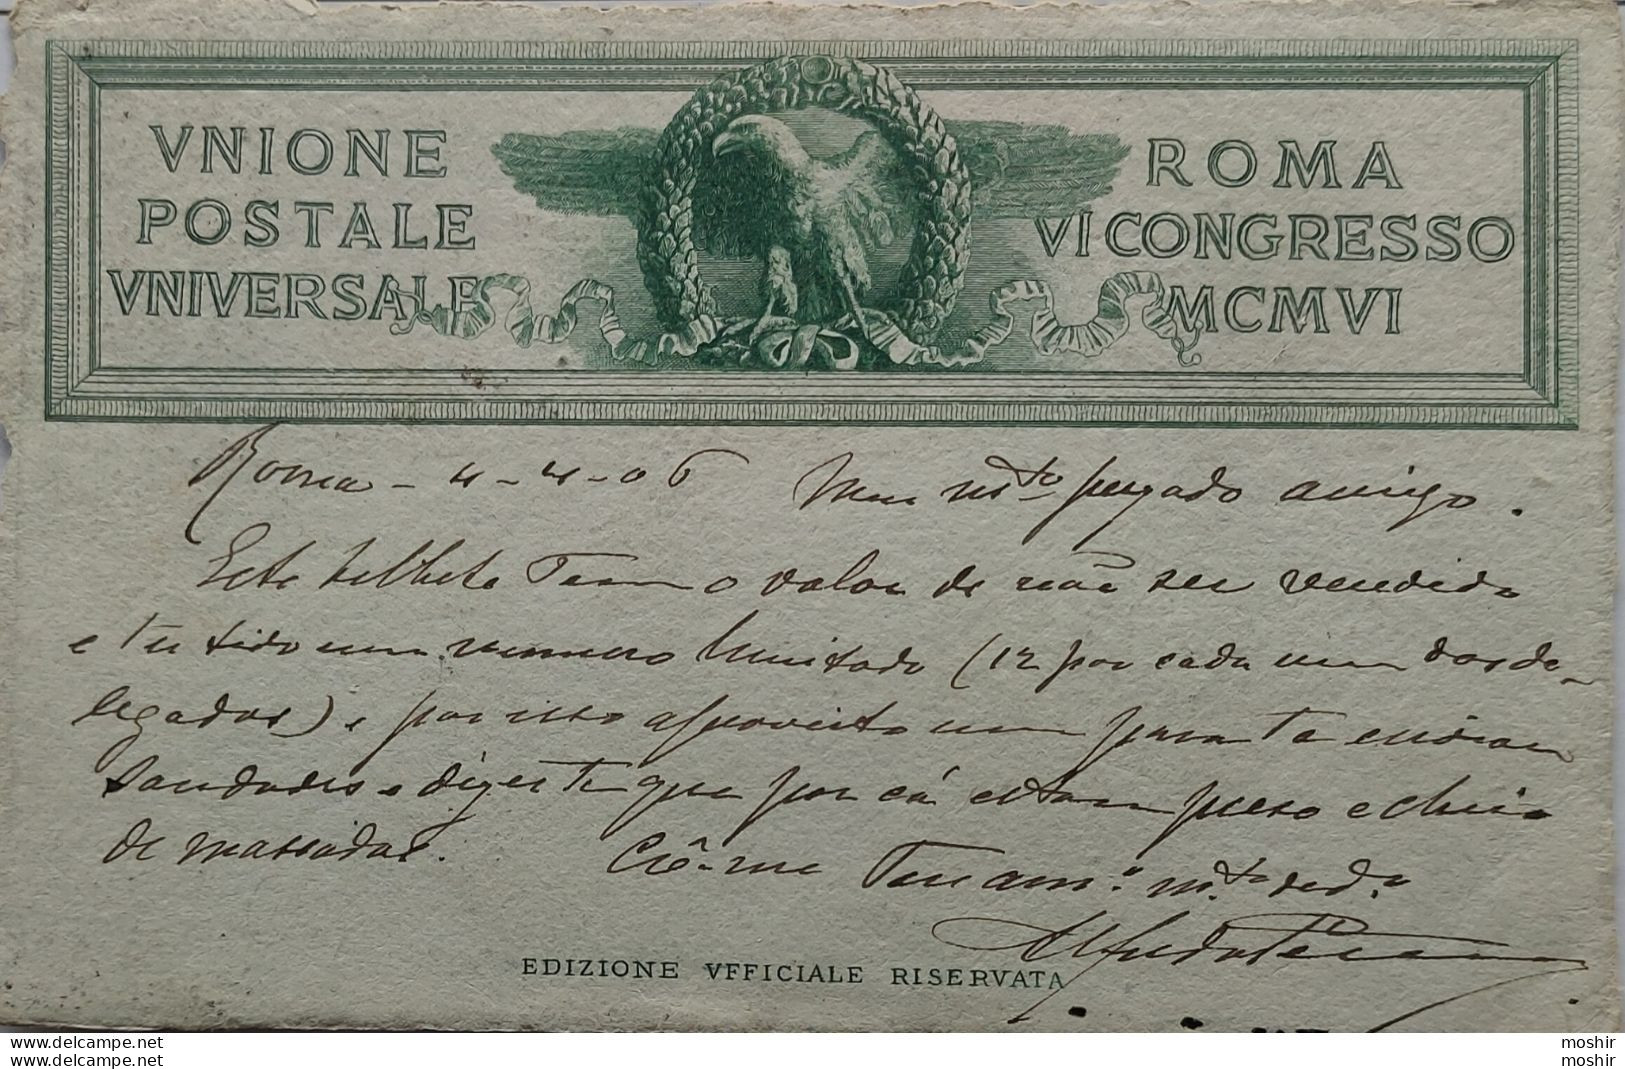 VNIONE
POSTALE
VNIVERSALE
ROMA
VI CONGRESSO
MCMVI
Roma - 4 - 4 - 06 Meu m.to prezado amigo.
Este bilhete tem o valor de não ser vendido
e ter tido um numero limitado (12 por cada um dos de-
legados) e por isso aproveito um para te enviar
saudades e dizer-te que por cá estam preso e cheio
de massadas. Crê-me Teu am.º m.to ded.º
Alfredo Pereira
EDIZIONE VFFICIALE RISERVATA
moshir
moshir